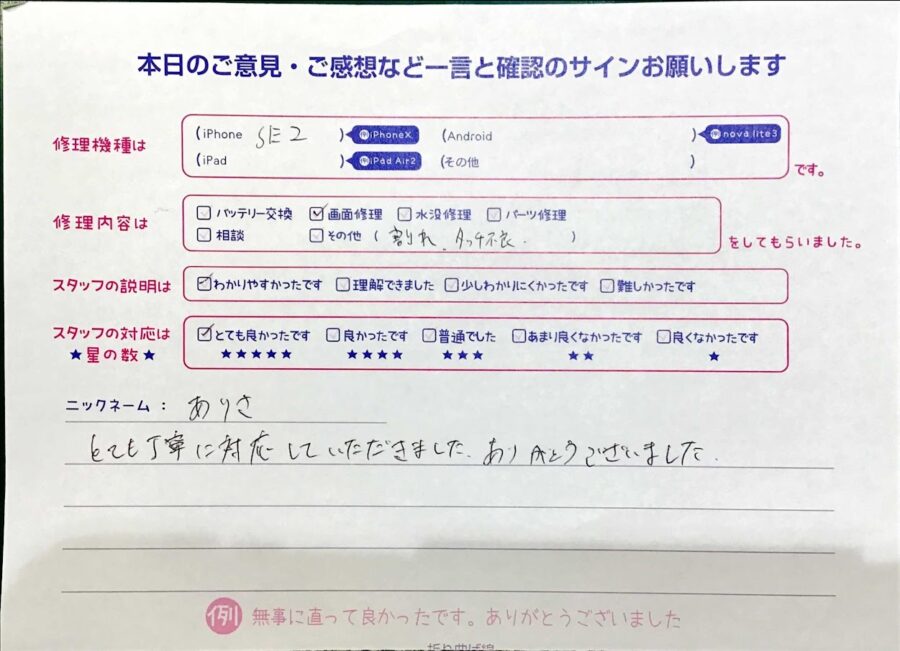 本日のご意見・ご感想など一言と確認のサインお願いします
修理機種は (iPhone SE2 ) 例iPhoneX (Android ) 例nova lite3
(iPad ) 例iPad Air2 (その他 ) です。
修理内容は バッテリー交換 画面修理 水没修理 パーツ修理
相談 その他 ( 割れ、タッチ不良. ) をしてもらいました。
スタッフの説明は わかりやすかったです 理解できました 少しわかりにくかったです 難しかったです
スタッフの対応は とても良かったです 良かったです 普通でした あまり良くなかったです 良くなかったです
★星の数★ ★★★★★ ★★★★ ★★★ ★★ ★
ニックネーム: ありさ
とても丁寧に対応していただきました、ありがとうございました.
例 無事に直って良かったです。ありがとうございました